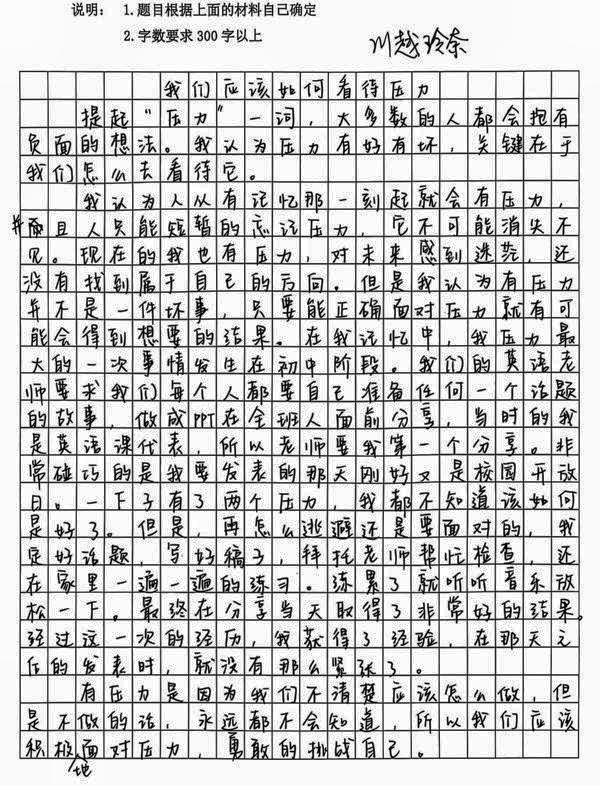 说明： 1.题目根据上面的材料自己确定
2.字数要求 300 字以上
川越玲奈
我们应该如何看待压力
提起“压力”一词，大多数的人都会抱有
负面的想法。我认为压力有好有坏，关键在于
我们怎么去看待它。
我认为人从有记忆那一刻起就会有压力，
并而且人只能短暂的忘记压力，它不可能消失不
见。现在的我也有压力，对未来感到迷茫，还
没有找到属于自己的方向。但是我认为有压力
并不是一件坏事，只要能正确面对压力就有可
能会得到想要的结果。在我记忆中，我压力最
大的一次事情发生在初中阶段。我们的英语老
师要求我们每个人都要自己准备任何一个话题
的故事，做成PPT在全班人面前分享，当时的我
是英语课代表，所以老师要我第一个分享。非
常碰巧的是我要发表的那天刚好又是校园开放
日。一下子有了两个压力，我都不知道该如何
是好了。但是，再怎么逃避还是要面对的，我
定好话题，写好稿子，拜托老师帮忙检查，还
在家里一遍一遍的练习。练累了就听听音乐放
松一下。最终在分享当天取得了非常好的结果。
经过这一次的经历，我获得了经验，在那天之
后的发表时，就没有那么紧张了。
有压力是因为我们不清楚应该怎么做，但
是不做的话，永远都不会知道，所以我们应该
积极面对压力，勇敢的挑战自己。
地